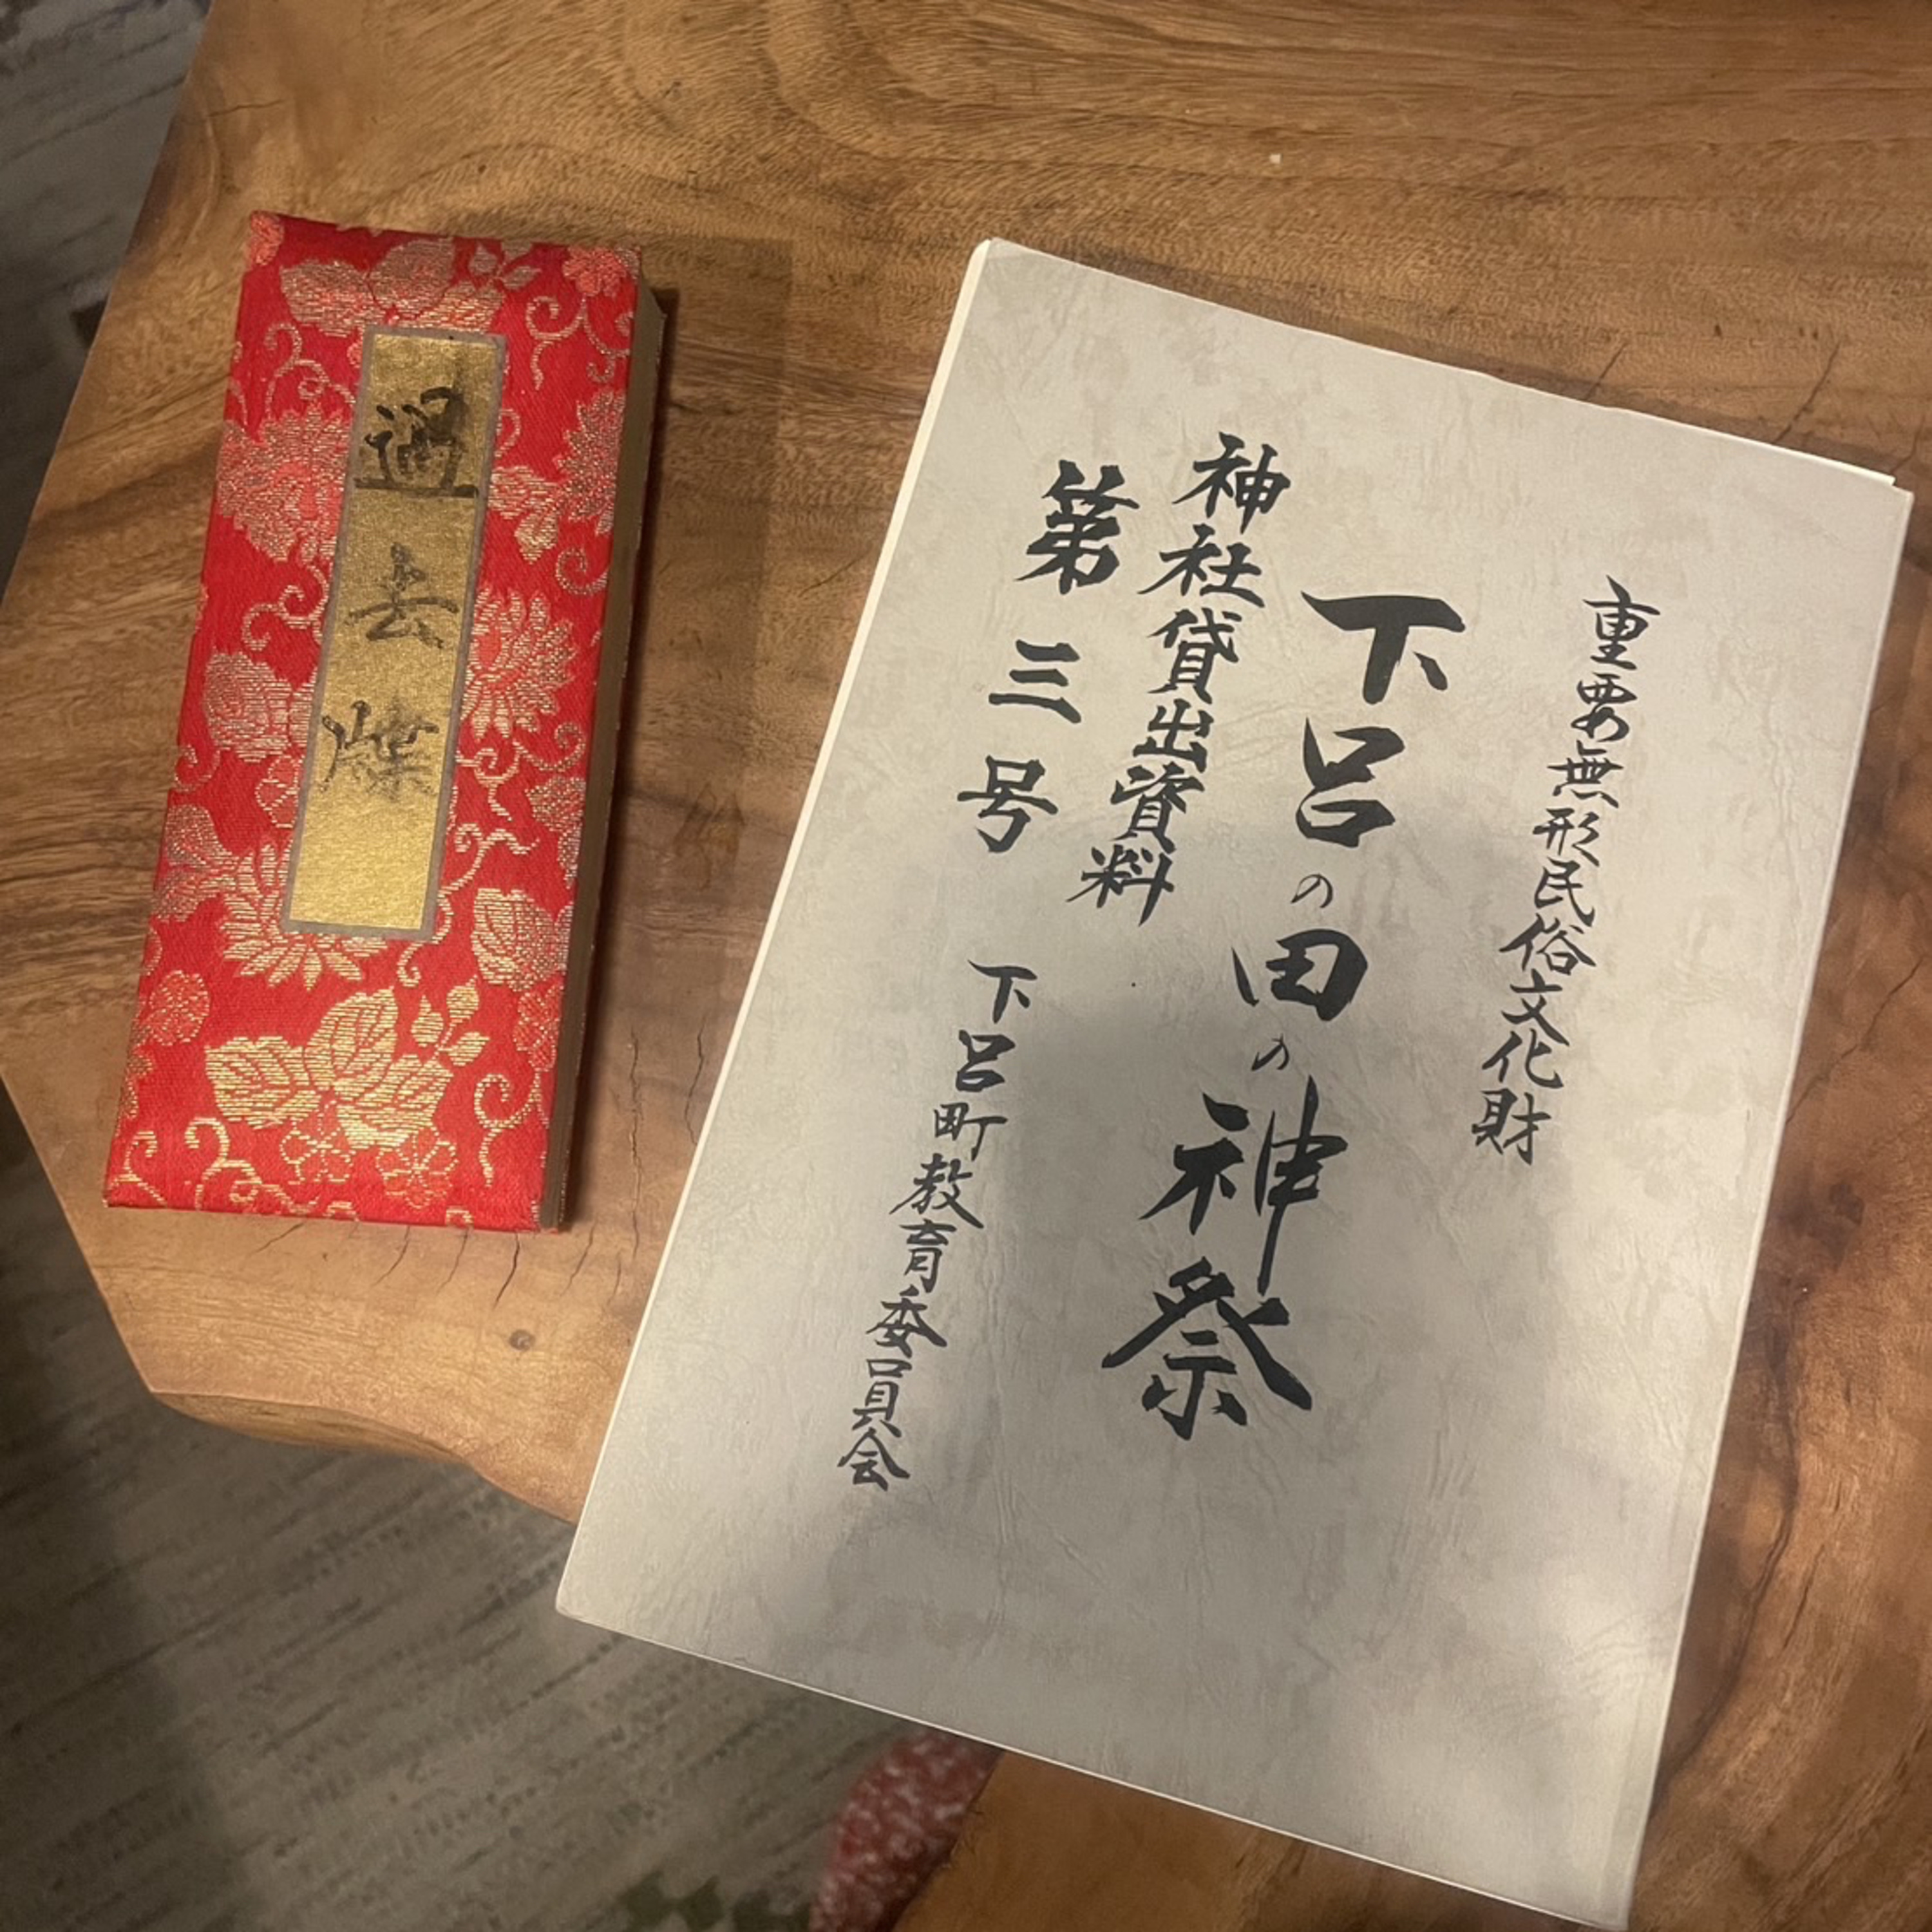 重要無形民俗文化財
下呂の田の神祭
神社貸出資料
第三号
下呂町教育委員会
過去牒